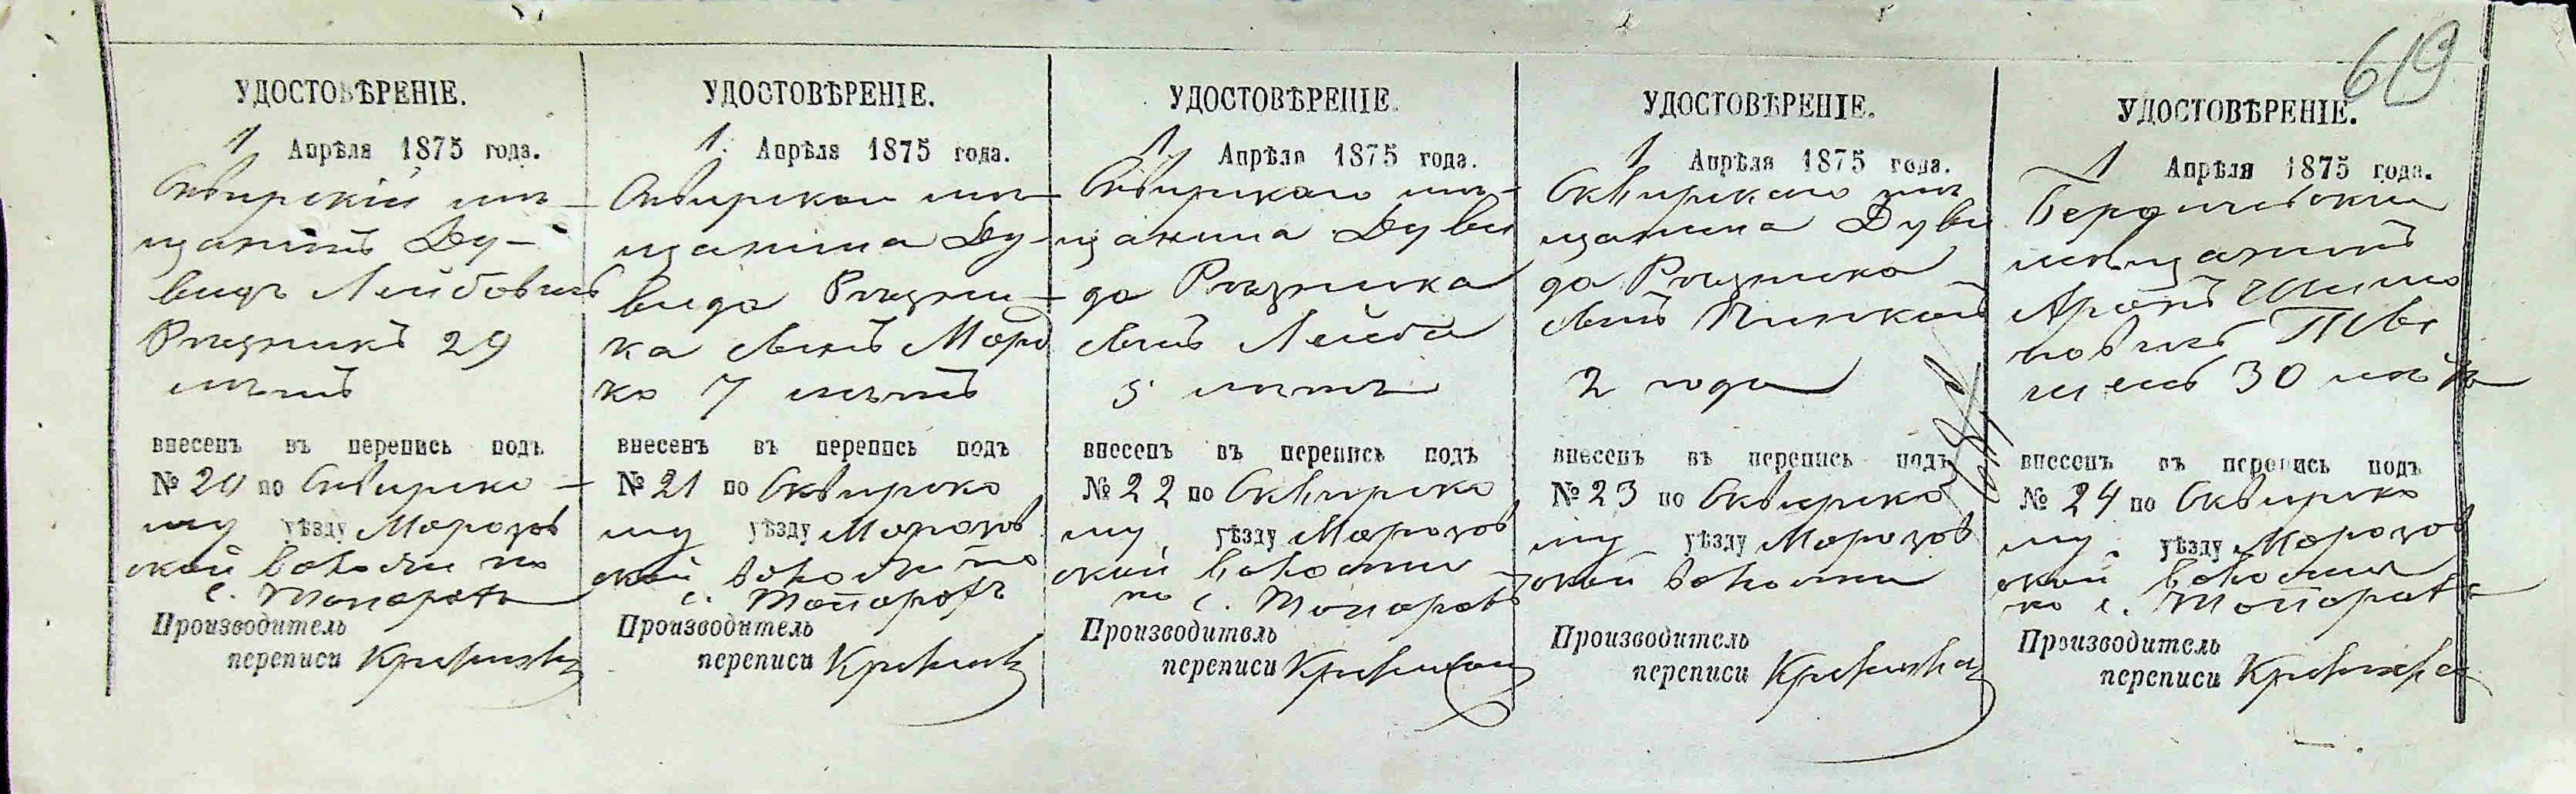 619
УДОСТОВѢРЕНІЕ.
1 Апрѣля 1875 года.
Сквирскій мѣ-
щанинъ Ду-
видъ Лейбовичъ
Рѣзникъ 29
лѣтъ
внесенъ въ перепись подъ
№ 20 по Сквирско-
му уѣзду Морозов
ской волости по
с. Топоровъ
Производитель
переписи
УДОСТОВѢРЕНІЕ.
1. Апрѣля 1875 года.
Сквирскаго мѣ-
щанина Ду-
вида Рѣзни-
ка сынъМорд
ко 7 лѣтъ
внесенъ въ перепись подъ
№ 21 по Сквирско
му уѣзду Морозов
ской волости по
с. Топоровъ
Производитель
переписи
УДОСТОВѢРЕНІЕ.
1 Апрѣля 1875 года.
Сквирскаго мѣ-
щанина Дуви
да Рѣзника
сынъ Лейба
5 лѣтъ
внесенъ въ перепись подъ
№ 22 по Сквирско
му уѣзду Морозов
ской волости
по с. Топоровъ
Производитель
переписи
УДОСТОВѢРЕНІЕ.
1 Апрѣля 1875 года.
Сквирскаго мѣ
щанина Дуви
да Рѣзника
сынъ Пинхасъ
2 года
внесенъ въ перепись подъ
№ 23 по Сквирско
му уѣзду Морозов
ской волости
Производитель
переписи
УДОСТОВѢРЕНІЕ.
1 Апрѣля 1875 года.
Бердичевскій
мѣщанинъ
Аронъ
30 лѣтъ
внесенъ въ перепись подъ
№ 24 по Сквирско
му уѣзду Морозов
ской волости
по с. Топоровъ
Производитель
переписи